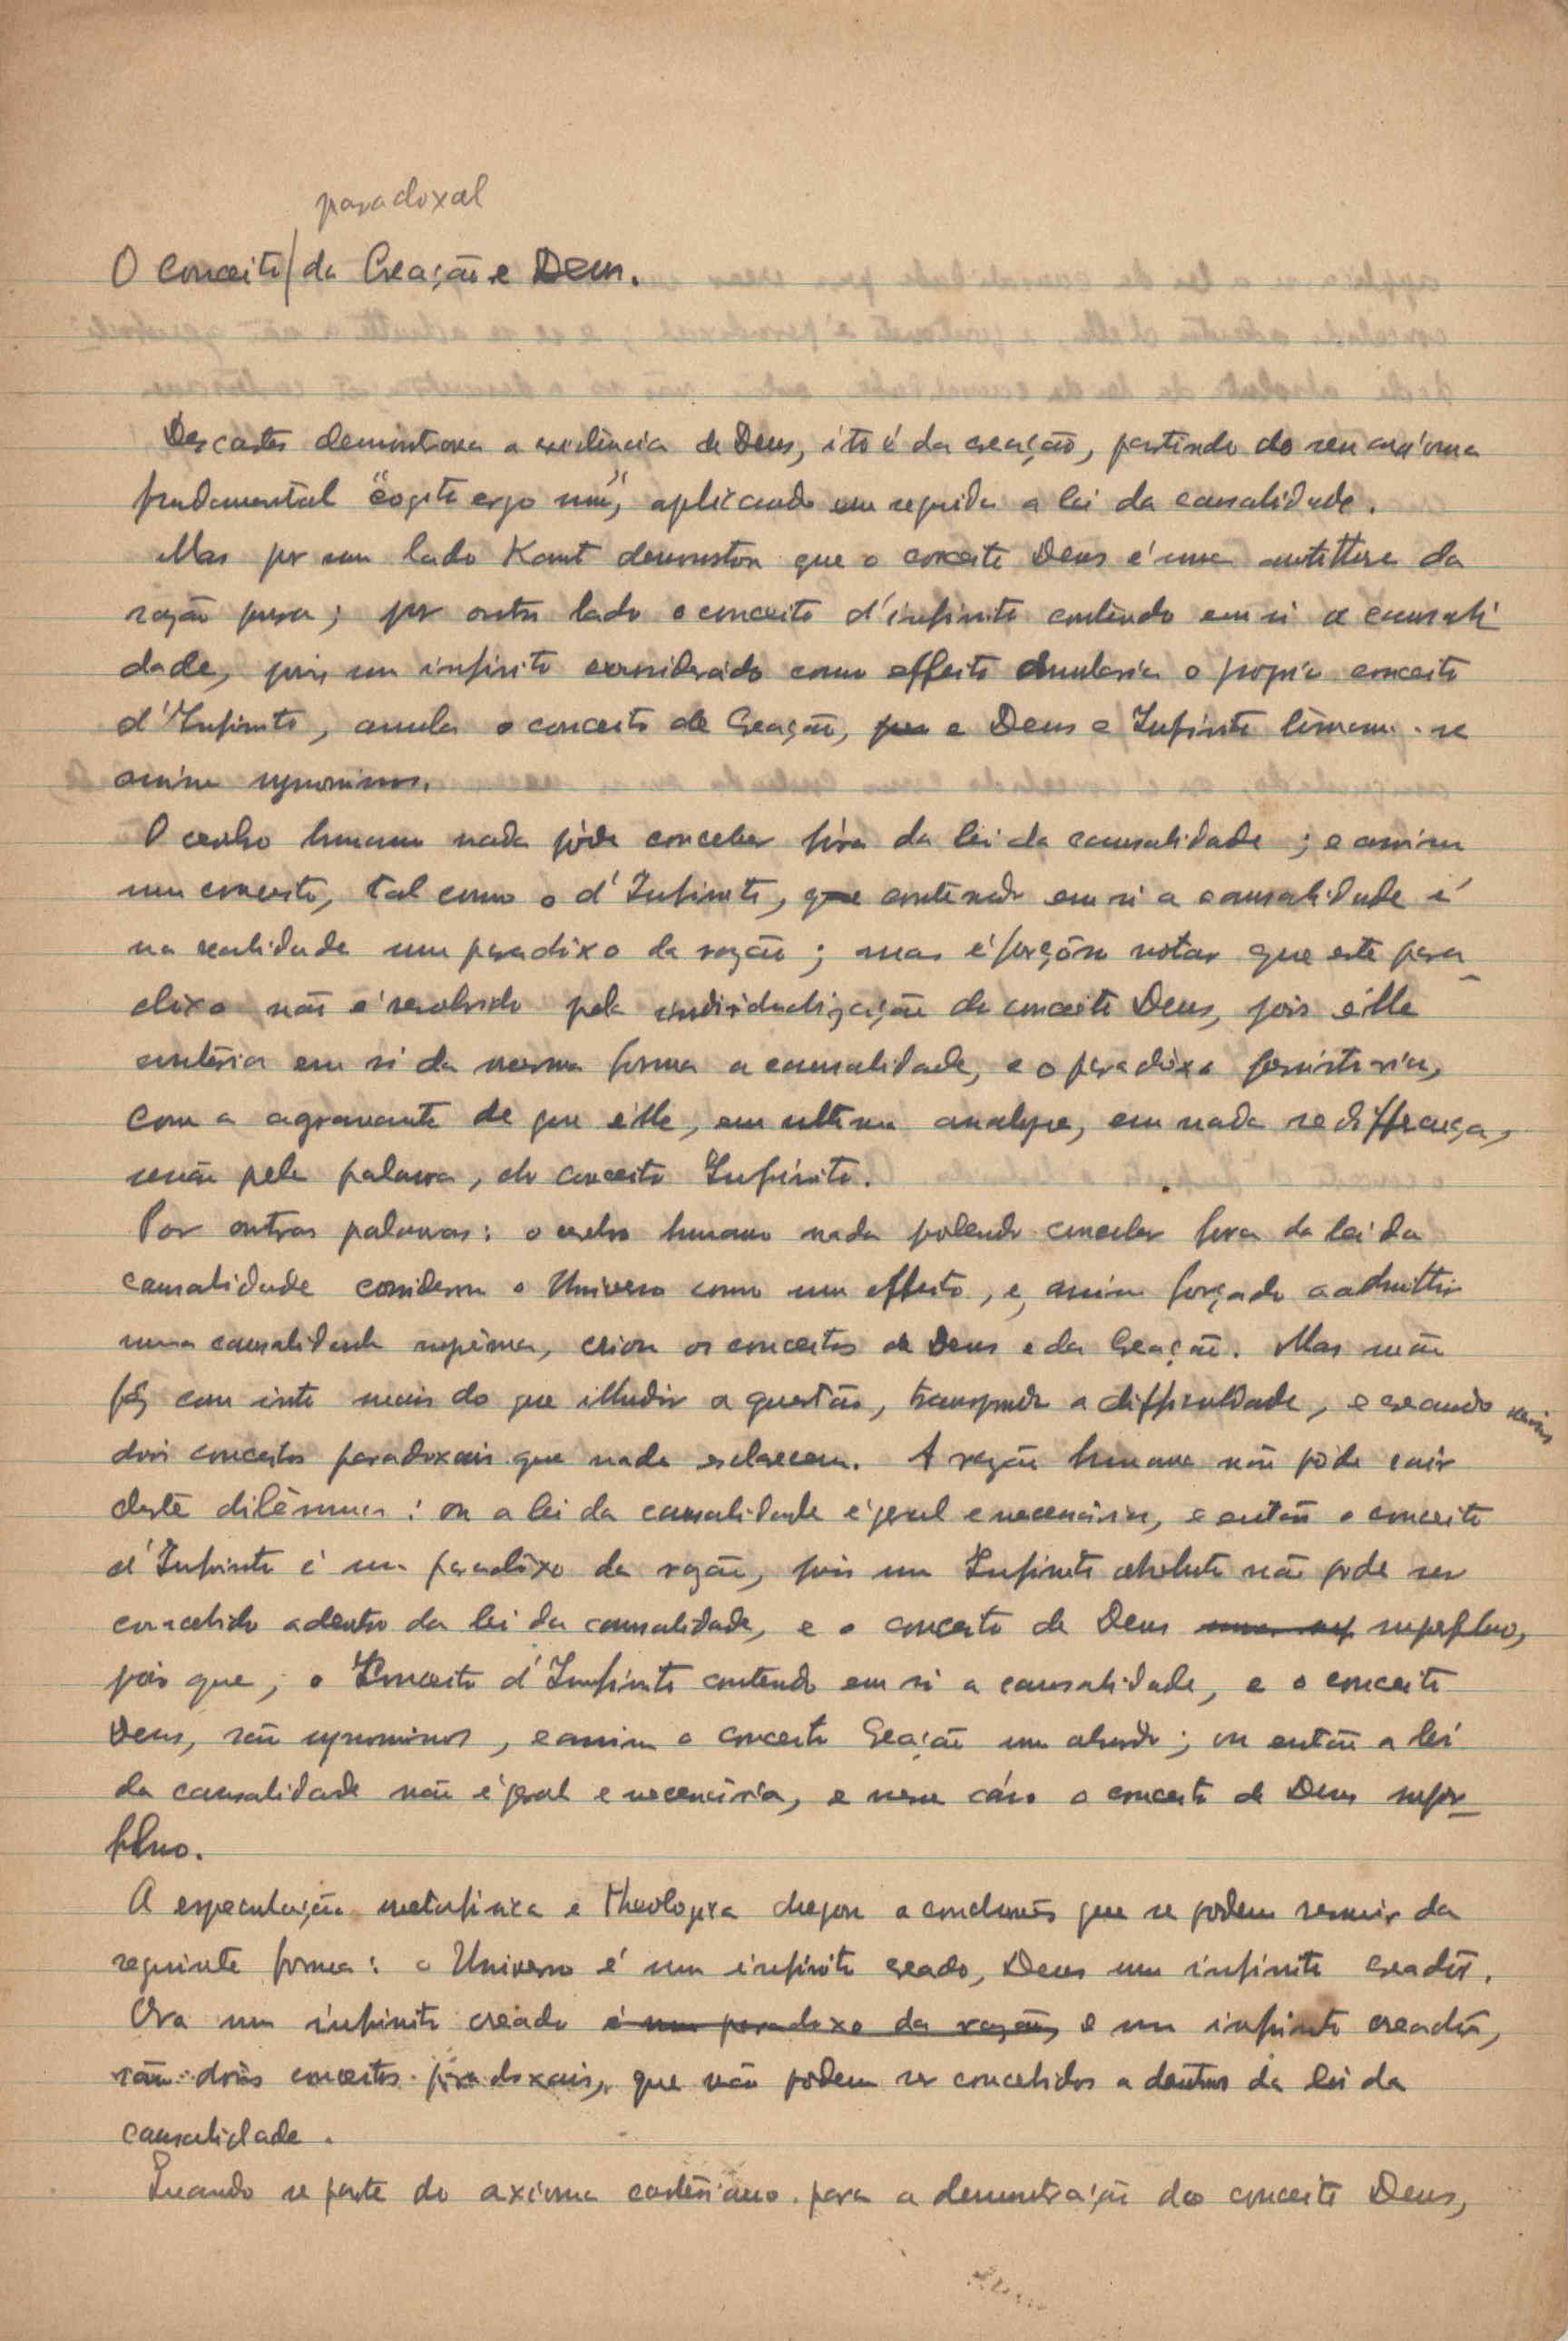 paradoxal
O conceito da Creação e Deus.
Descartes demonstrava a existência de Deus, isto é da creação, partindo do seu axióma
fundamental "cogito ergo sum", aplicando em seguida a lei da causalidade.
Mas por um lado Kant demonstrou que o conceito Deus é uma antithese da
razão pura; por outro lado o conceito d'infinito contendo em si a causali
dade, pois um infinito considerado como effeito annularia o proprio conceito
d'Infinito, annula o conceito de Creação, e Deus e Infinito tórnam-se
assim synonimos.
O cerebro humano nada póde conceber fóra da lei da causalidade; e assim
um conceito, tal como o d'Infinito, que contendo em si a causalidade é
na realidade um paradoxo da razão; mas é forçôso notar que este para-
doxo não é resolvido pela individualização do conceito Deus, pois êlle
contêria em si da mesma forma a causalidade, e o paradoxo persistiria,
com a agravante de que êlle, em ultima analyse, em nada se differença,
senão pela palavra, do conceito Infinito.
Por outras palavras: o cerebro humano nada podendo conceber fora da lei da
causalidade considerou o Universo como um effeito, e, assim forçado a admittir
uma causalidade suprêma, criou os conceitos de Deus e da Creação. Mas não
fêz com isto mais do que illudir a questão, transpondo a difficuldade, e creando
dois conceitos paradoxais que nada esclarecem. A razão humana não póde sair
deste dilêmma: ou a lei da causalidade é geral e necessária, e então o conceito
d'Infinito é um paradoxo da razão, pois um Infinito absoluto não pode ser
concebido adentro da lei da causalidade, e o conceito de Deus superfluo,
pois que, o Conceito d'Infinito contendo em si a causalidade, e o conceito
Deus, são synonimos, e assim o conceito Creação um absurdo; ou então a lei
da causalidade não é geral e necessária, e nesse cáso o conceito de Deus super-
fluo.
A especulação metafisica e theologica chegou a conclusões que se podem resumir da
seguinte forma: o Universo é um infinito creado, Deus um infinito creadôr.
Ora um infinito creado é um paradoxo da razão, e um infinito creadôr,
são dois conceitos paradoxais, que não podem ser concebidos a dentro da lei da
causalidade.
Quando se parte do axioma cartesiano para a demonstração do conceito Deus,